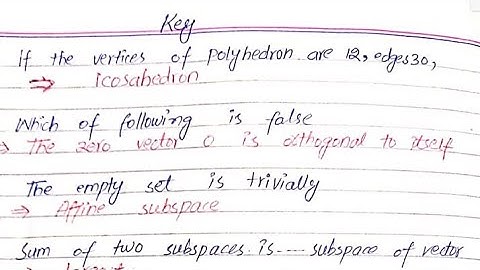 Key
If the vertices of polyhedron are 12, edges 30,
⇒ icosahedron
Which of following is false
⇒ The zero vector 0 is orthogonal to itself
The empty set is trivially
⇒ Affine subspace
Sum of two subspaces is ---- subspace of vector